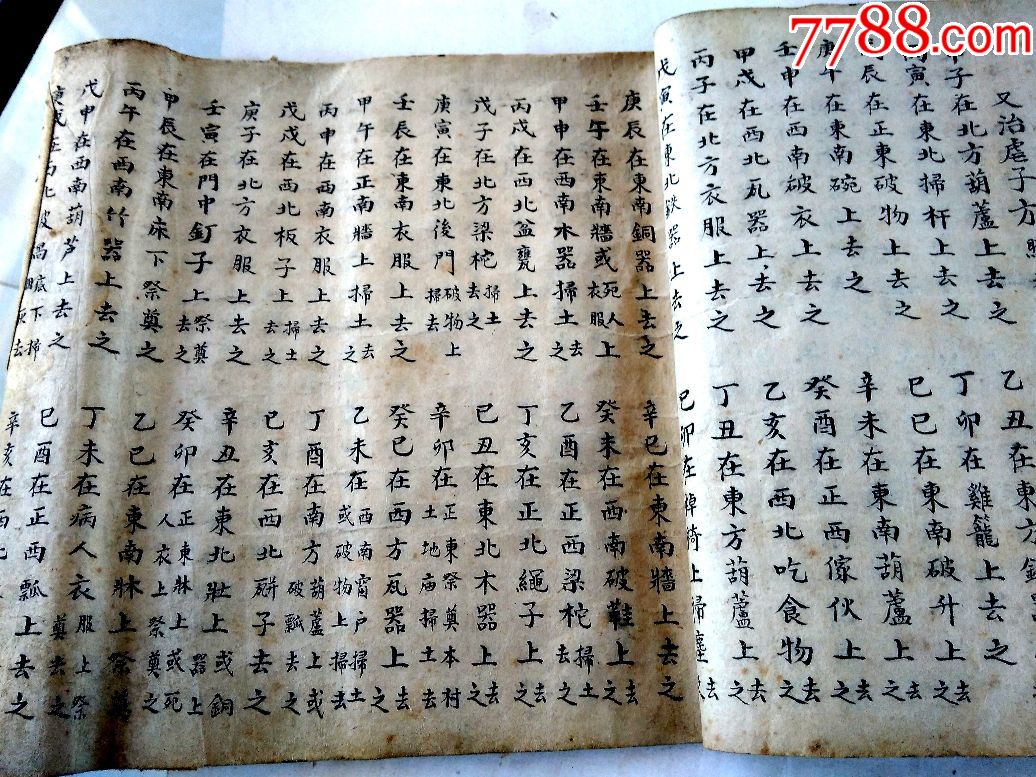 7788.com
又治虐子方
子在北方葫蘆上去之 乙丑在東
寅在東北掃杆上去之 丁卯在雞籠上去之
辰在正東破物上去之 己巳在東南破升上去之
庚午在東南碗上去之 辛未在東南葫蘆上去之
壬申在西南破衣上去之 癸酉在正西傢伙上去之
甲戌在西北瓦器上去之 乙亥在西北吃食物去之
丙子在北方衣服上去之 丁丑在東方葫蘆上去之
戊寅在東北鉄器上去之 己卯在棹綺上掃塵去
庚辰在東南銅器上去之 辛巳在東南牆上去之
壬午在東南牆或死人衣服上 癸未在西南破鞋上去之
甲申在西南木器掃土去之 乙酉在正西梁柁掃土去之
丙戌在西北盆甕上去之 丁亥在正北繩子上去之
戊子在北方梁柁掃土去之 己丑在東北木器上去之
庚寅在東北後門破物上掃去 辛卯在正東祭奠本村土地庙掃土去
壬辰在東南衣服上去之 癸巳在西方瓦器上去之
甲午在正南牆上掃土去之 乙未在西南窗户掃土或破物上掃去之
丙申在西南衣服上去之 丁酉在南方葫蘆上或破瓢去之
戊戌在西北板子上掃土去之 己亥在西北餅子去之
庚子在北方衣服上去之 辛丑在東北壯上或銅器上
壬寅在門中釘子上祭奠去之 癸卯在正東牀上或死人衣上祭奠之
甲辰在東南床下祭奠之 乙巳在東南牀上祭奠
丙午在西南竹器上去之 丁未在病人衣服上祭奠去之
戊申在西南葫芦上去之 己酉在正西瓢上去之
庚戌在西北破鍋底下掃灰去 辛亥在西北